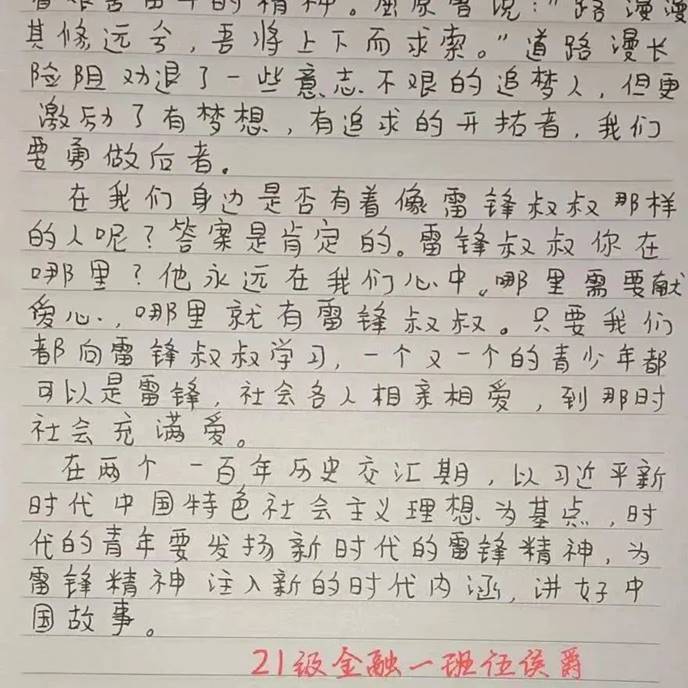 有艰苦奋斗的精神。屈原曾说：“路漫漫
其修远兮，吾将上下而求索。”道路漫长
险阻劝退了一些意志不艰的追梦人，但更
激励了有梦想，有追求的开拓者，我们
要勇做后者。
在我们身边是否有着像雷锋叔叔那样
的人呢？答案是肯定的。雷锋叔叔你在
哪里？他永远在我们心中。哪里需要献
爱心，哪里就有雷锋叔叔。只要我们
都向雷锋叔叔学习，一个又一个的青少年都
可以是雷锋，社会各人相亲相爱，到那时
社会充满爱。
在两个一百年历史交汇期，以习近平新
时代中国特色社会主义理想为基点，时
代的青年要发扬新时代的雷锋精神，为
雷锋精神注入新的时代内涵，讲好中
国故事。
21级金融一班伍侯爵